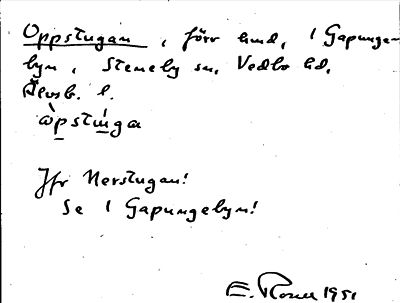 Oppstugan, förr lund, i Gapunge-
byn, Steneby sn, Vedbo hd,
Älvsb. l.
òpstúnga
Jfr Nerstugan!
Se i Gapungebyn!
E. 1951